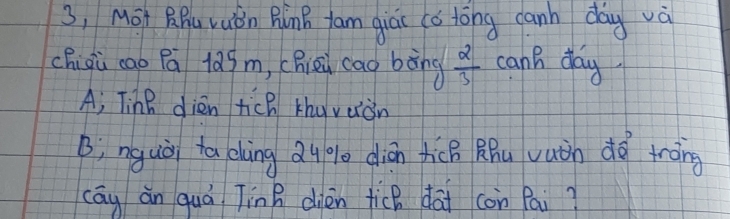 3, Một khu vườn hình tam giác có tổng cạnh đáy và
chiều cao là 125 m, chiều cao bằng 2/3 cạnh đáy.
A; Tính diện tích khu vườn
B; người ta dùng 24% diện tích khu vườn để trồng
cây ăn quả. Tính diện tích đất còn lại?